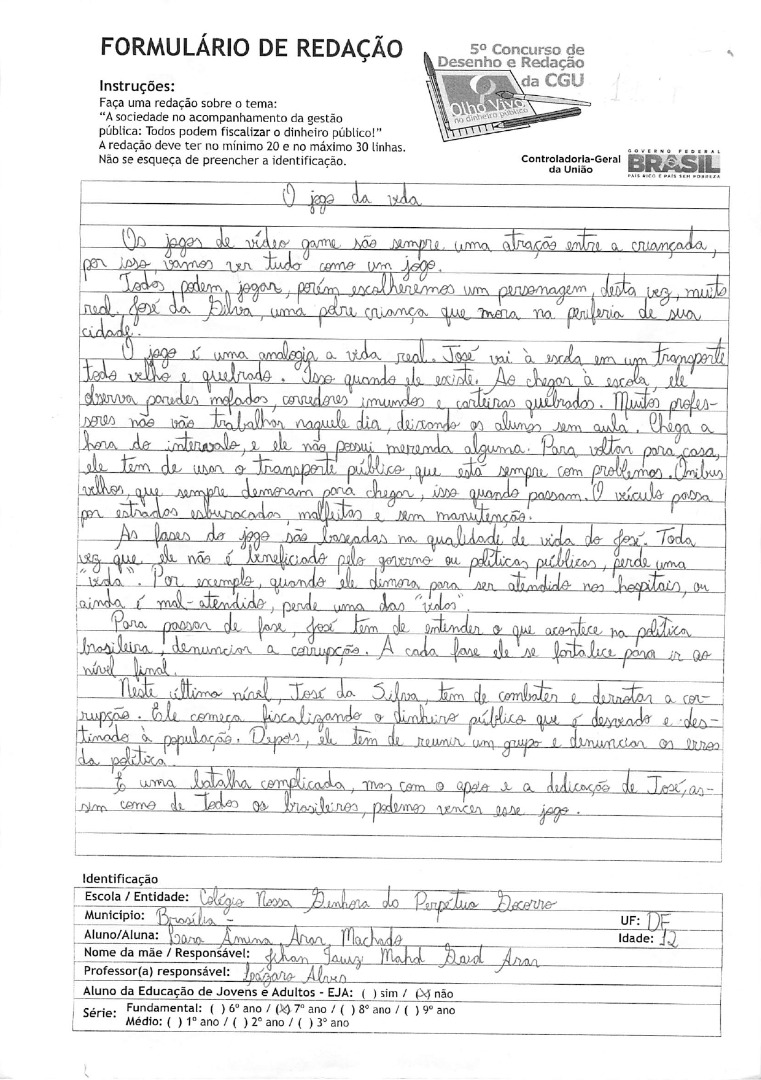 FORMULÁRIO DE REDAÇÃO
5º Concurso de
Desenho e Redação
da CGU
Olho Vivo
no dinheiro público
Instruções:
Faça uma redação sobre o tema:
“A sociedade no acompanhamento da gestão
pública: Todos podem fiscalizar o dinheiro público!”
A redação deve ter no mínimo 20 e no máximo 30 linhas.
Não se esqueça de preencher a identificação.
Controladoria-Geral
da União
GOVERNO FEDERAL
BRASIL
PAÍS RICO É PAÍS SEM POBREZA
O jogo da vida
Os jogos de vídeo game são sempre uma atração entre a criançada,
por isso, vamos ver tudo como um jogo.
Todos podem jogar, porém escolheremos um personagem, desta vez, muito
real. José da Silva, uma pobre criança que mora na periferia de sua
cidade.
O jogo é uma analogia a vida real. José vai à escola em um transporte
todo velho e quebrado. Isso quando ele existe. Ao chegar à escola, ele
observa paredes mofadas, corredores imundos e carteiras quebradas. Muitos profes-
sores não vão trabalhar naquele dia, deixando os alunos sem aula. Chega a
hora do intervalo, e ele não possui merenda alguma. Para voltar para casa,
ele tem de usar o transporte público, que está sempre com problemas. Ônibus
velhos, que sempre demoram para chegar, isso quando passam. O veículo passa
por estradas esburacadas, malfeitas e sem manutenção.
As fases do jogo são baseadas na qualidade de vida do José. Toda
vez que ele não é beneficiado pelo governo ou políticas públicas, perde uma
"vida". Por exemplo, quando ele demora para ser atendido nos hospitais, ou
ainda é mal-atendido, perde uma das "vidas".
Para passar de fase, José tem de entender o que acontece na política
brasileira, denunciar a corrupção. A cada fase ele se fortalece para ir ao
nível final.
Neste último nível, José da Silva, tem de combater e derrotar a cor-
rupção. Ele começa fiscalizando o dinheiro público que é desviado e des-
tinado à população. Depois, ele tem de reunir um grupo e denunciar os erros
da política.
É uma batalha complicada, mas com o apoio e a dedicação de José, as-
sim como de todos os brasileiros, podemos vencer esse jogo.
Identificação
Escola / Entidade: Colégio Nossa Senhora do Perpétuo Socorro
Município: Brasília -
UF: DF
Aluno/Aluna: Lara Âmina Arar Machado
Idade: 12
Nome da mãe / Responsável: Jihan Arar
Professor(a) responsável: Leázaro Alves
Aluno da Educação de Jovens e Adultos - EJA: ( ) sim / (X) não
Série: Fundamental: ( ) 6º ano / (X) 7º ano / ( ) 8º ano / ( ) 9º ano
Médio: ( ) 1º ano / ( ) 2º ano / ( ) 3º ano